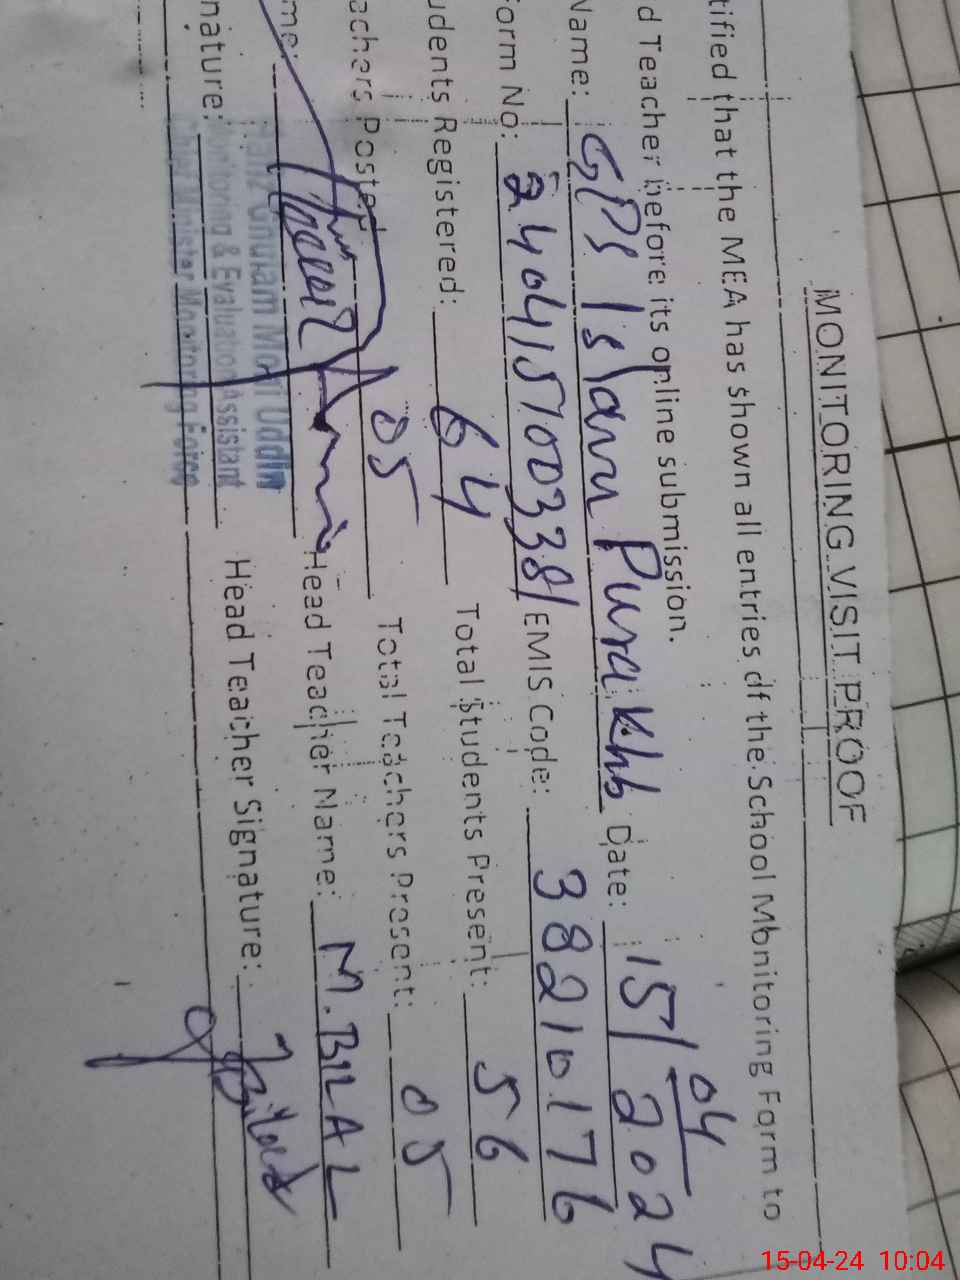 MONITORING VISIT PROOF
tified that the MEA has shown all entries of the School Monitoring Form to
d Teacher before its online submission.
Name: GPS Islam Pura Khb Date: 15/04/2024
Form No: 2404151003381 EMIS Code: 38210176
udents Registered: 64 Total Students Present: 56
achers Posted 05 Total Teachers Present: 05
me: Head Teacher Name: M. BILAL
nature: Head Teacher Signature: Bilal
Ghulam Mohi Uddin
Monitoring & Evaluation Assistant
Chief Minister Monitoring Force
15-04-24 10:04